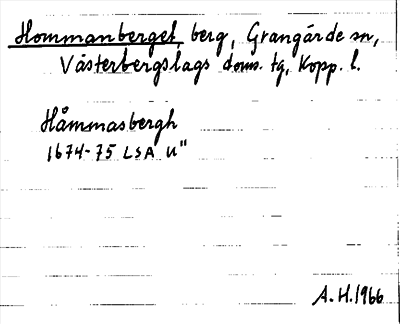 Hommanberget, berg, Grangärde sn,
Västerbergslags doms. tg, Kopp. l.
Håmmasbergh
1674-75 LSA U"
A.H. 1966